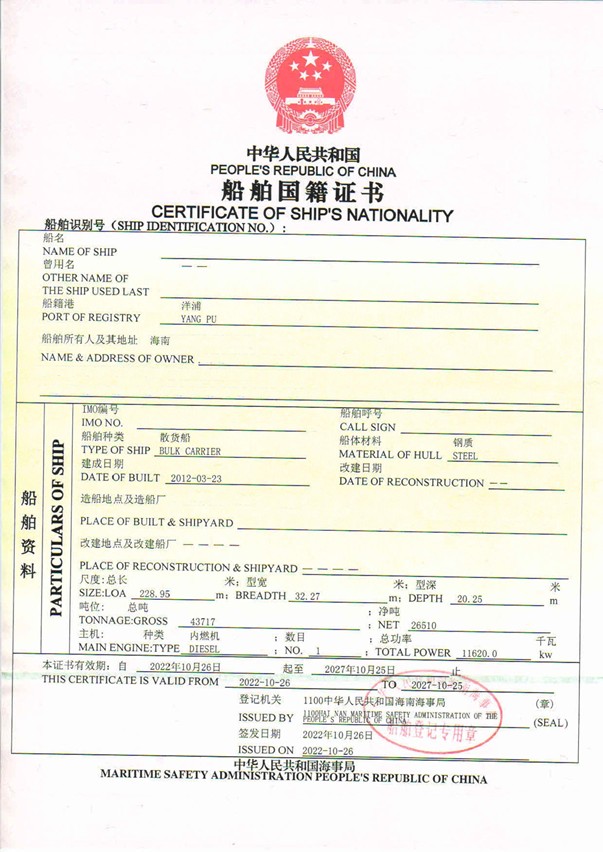 中华人民共和国
PEOPLE'S REPUBLIC OF CHINA
船舶国籍证书
CERTIFICATE OF SHIP'S NATIONALITY
船舶识别号（SHIP IDENTIFICATION NO.）:
船名
NAME OF SHIP
曾用名 — —
OTHER NAME OF
THE SHIP USED LAST
船籍港 洋浦
PORT OF REGISTRY YANG PU
船舶所有人及其地址 海南
NAME & ADDRESS OF OWNER
船舶资料
PARTICULARS OF SHIP
IMO编号 船舶呼号
IMO NO. CALL SIGN
船舶种类 散货船 船体材料 钢质
TYPE OF SHIP BULK CARRIER MATERIAL OF HULL STEEL
建成日期 改建日期
DATE OF BUILT 2012-03-23 DATE OF RECONSTRUCTION — —
造船地点及造船厂
PLACE OF BUILT & SHIPYARD
改建地点及改建船厂 — — — —
PLACE OF RECONSTRUCTION & SHIPYARD — — — —
尺度:总长 米; 型宽 米; 型深 米
SIZE:LOA 228.95 m; BREADTH 32.27 m; DEPTH 20.25 m
吨位: 总吨 ; 净吨
TONNAGE:GROSS 43717 ; NET 26510
主机: 种类 内燃机 ; 数目 ; 总功率 千瓦
MAIN ENGINE:TYPE DIESEL ; NO. 1 ; TOTAL POWER 11620.0 kw
本证书有效期: 自 2022年10月26日 起至 2027年10月25日 止
THIS CERTIFICATE IS VALID FROM 2022-10-26 TO 2027-10-25
登记机关 1100中华人民共和国海南海事局 (章)
ISSUED BY 1100HAI NAN MARITIME SAFETY ADMINISTRATION OF THE PEOPLE'S REPUBLIC OF CHINA (SEAL)
签发日期 2022年10月26日
ISSUED ON 2022-10-26
船舶登记专用章
中华人民共和国海事局
MARITIME SAFETY ADMINISTRATION PEOPLE'S REPUBLIC OF CHINA